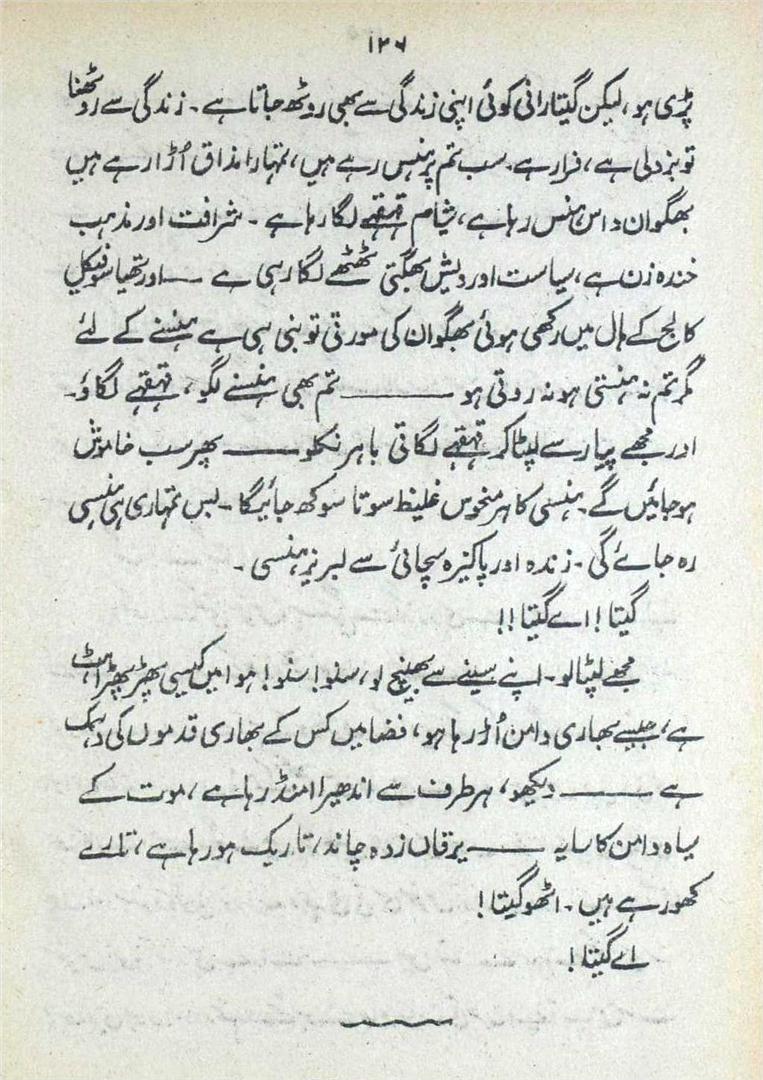 ۱۲۶
پڑی ہو، لیکن گیتا رانی کوئی اپنی زندگی سے بھی روٹھ جاتا ہے۔ زندگی سے روٹھنا
تو بزدلی ہے، فرار ہے۔ سب تم پر ہنس رہے ہیں، تمہارا مذاق اُڑا رہے ہیں
بھگوان داس ہنس رہا ہے، شیام قہقہے لگا رہا ہے۔ شرافت اور مذہب
خندہ زن ہے، سیاست اور دیش بھگتی ٹھٹھے لگا رہی ہے —— اور تھیاسوفیکل
کالج کے ہال میں رکھی ہوئی بھگوان کی مورتی تو بنی ہی ہے ہنسنے کے لئے
مگر تم نہ ہنستی ہو نہ روتی ہو ———— تم بھی ہنسنے لگو، قہقہے لگاؤ۔
اور مجھے پیار سے لپٹا کر قہقہے لگاتی باہر نکلو ——— پھر سب خاموش
ہو جائیں گے۔ ہنسی کا ہر منحوس غلیظ سوتا سوکھ جائیگا۔ بس تمہاری ہی ہنسی
رہ جائے گی۔ زندہ اور پاکیزہ سچائی سے لبریز ہنسی۔
گیتا! اے گیتا!!
مجھے لپٹا لو۔ اپنے سینے سے بھینچ لو، سنو! سنو! ہوا میں کیسی پھڑپھڑاہٹ
ہے، جیسے بھاری دامن اُڑ رہا ہو، فضا میں کس کے بھاری قدموں کی دہمک
ہے ——— دیکھو، ہر طرف سے اندھیرا امنڈ رہا ہے، موت کے
سیاہ دامن کا سایہ ——— یرقاں زدہ چاند، تاریک ہو رہا ہے، تارے
گھور رہے ہیں۔ اٹھو گیتا!
اے گیتا!